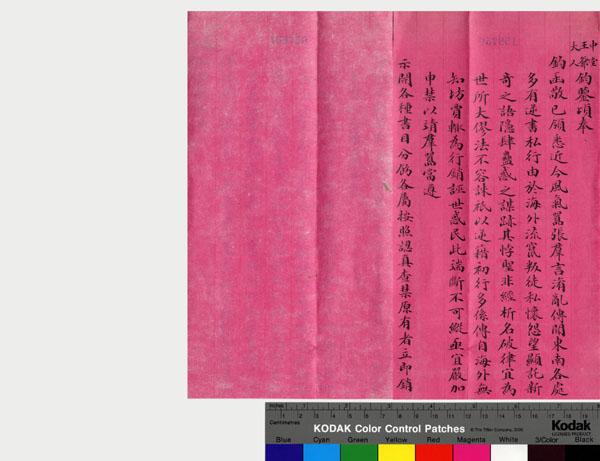 中堂
王爺鈞鑒頃奉
大人
鈞函敬已領悉近今風氣囂張羣言淆亂傳聞東南各處
多有逆書私行由於海外流竄叛徒私懷怨望顯託新
奇之語隱肆蠱惑之謀跡其悖聖非經析名破律宜為
世所大僇法不容誅祇以逆籍初行多係傳自海外無
知坊賈輒為行銷誣世惑民此端斷不可縱亟宜嚴加
申禁以靖羣囂當遵
示開各種書目分飭各屬按照認真查禁原有者立即銷
Inches
Centimetres
KODAK Color Control Patches
© The Tiffen Company, 2000
Kodak
LICENSED PRODUCT
Blue Cyan Green Yellow Red Magenta White 3/Color Black